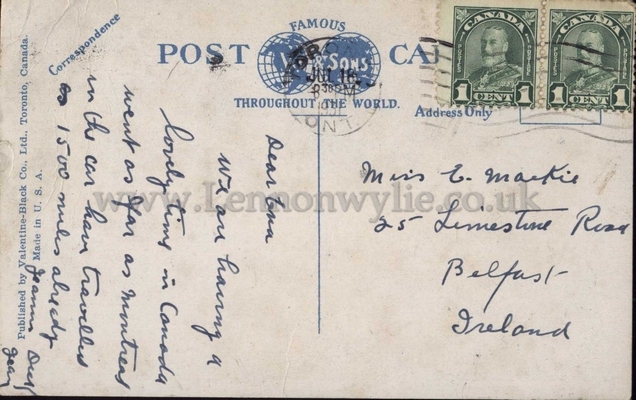 Correspondence
FAMOUS
POST
V & SONS
THROUGHOUT THE WORLD.
Address Only
CANADA
1 CENT 1
CANADA
1 CENT 1
JUL 16
Dear Emma
We are having a
lovely time in Canada
went as far as Montreal
in the car have travelled
1500 miles already
Jean
Miss E. Mackie
25 Limestone Road
Belfast
Ireland
Published by Valentine-Black Co., Ltd., Toronto, Canada.
Made in U. S. A.
www.Lennonwylie.co.uk